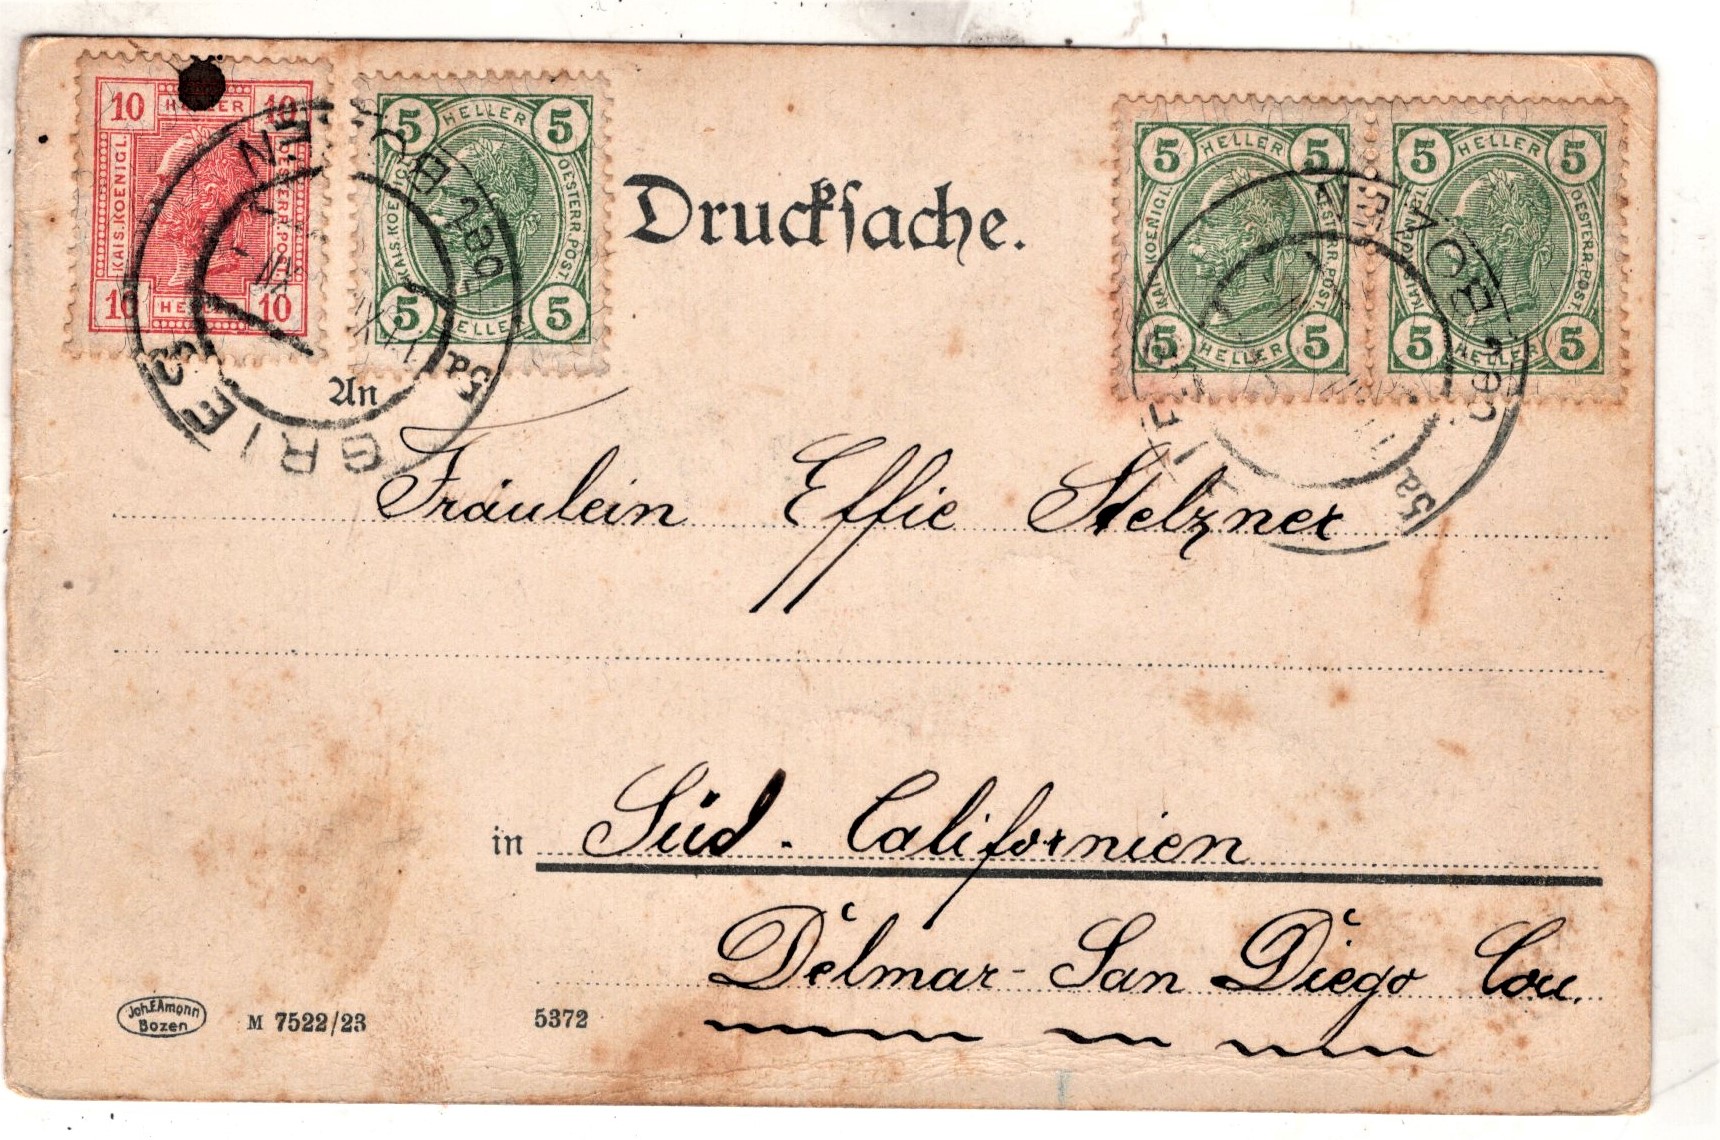 10 HELLER 10
KAIS. KOENIGL.
OESTERR. POST.
10 HELLER 10
5 HELLER 5
KAIS. KOENIGL.
OESTERR. POST.
5 HELLER 5
5 HELLER 5
KAIS. KOENIGL.
OESTERR. POST.
5 HELLER 5
5 HELLER 5
KAIS. KOENIGL.
OESTERR. POST.
5 HELLER 5
BOZEN
GRIES
5a
BOZEN
5a
Druckſache.
An
Fräulein Effie Stelzner
in Süd - Californien
Delmar - San Diego Cou.
Joh. F. Amonn
Bozen
M 7522/23
5372